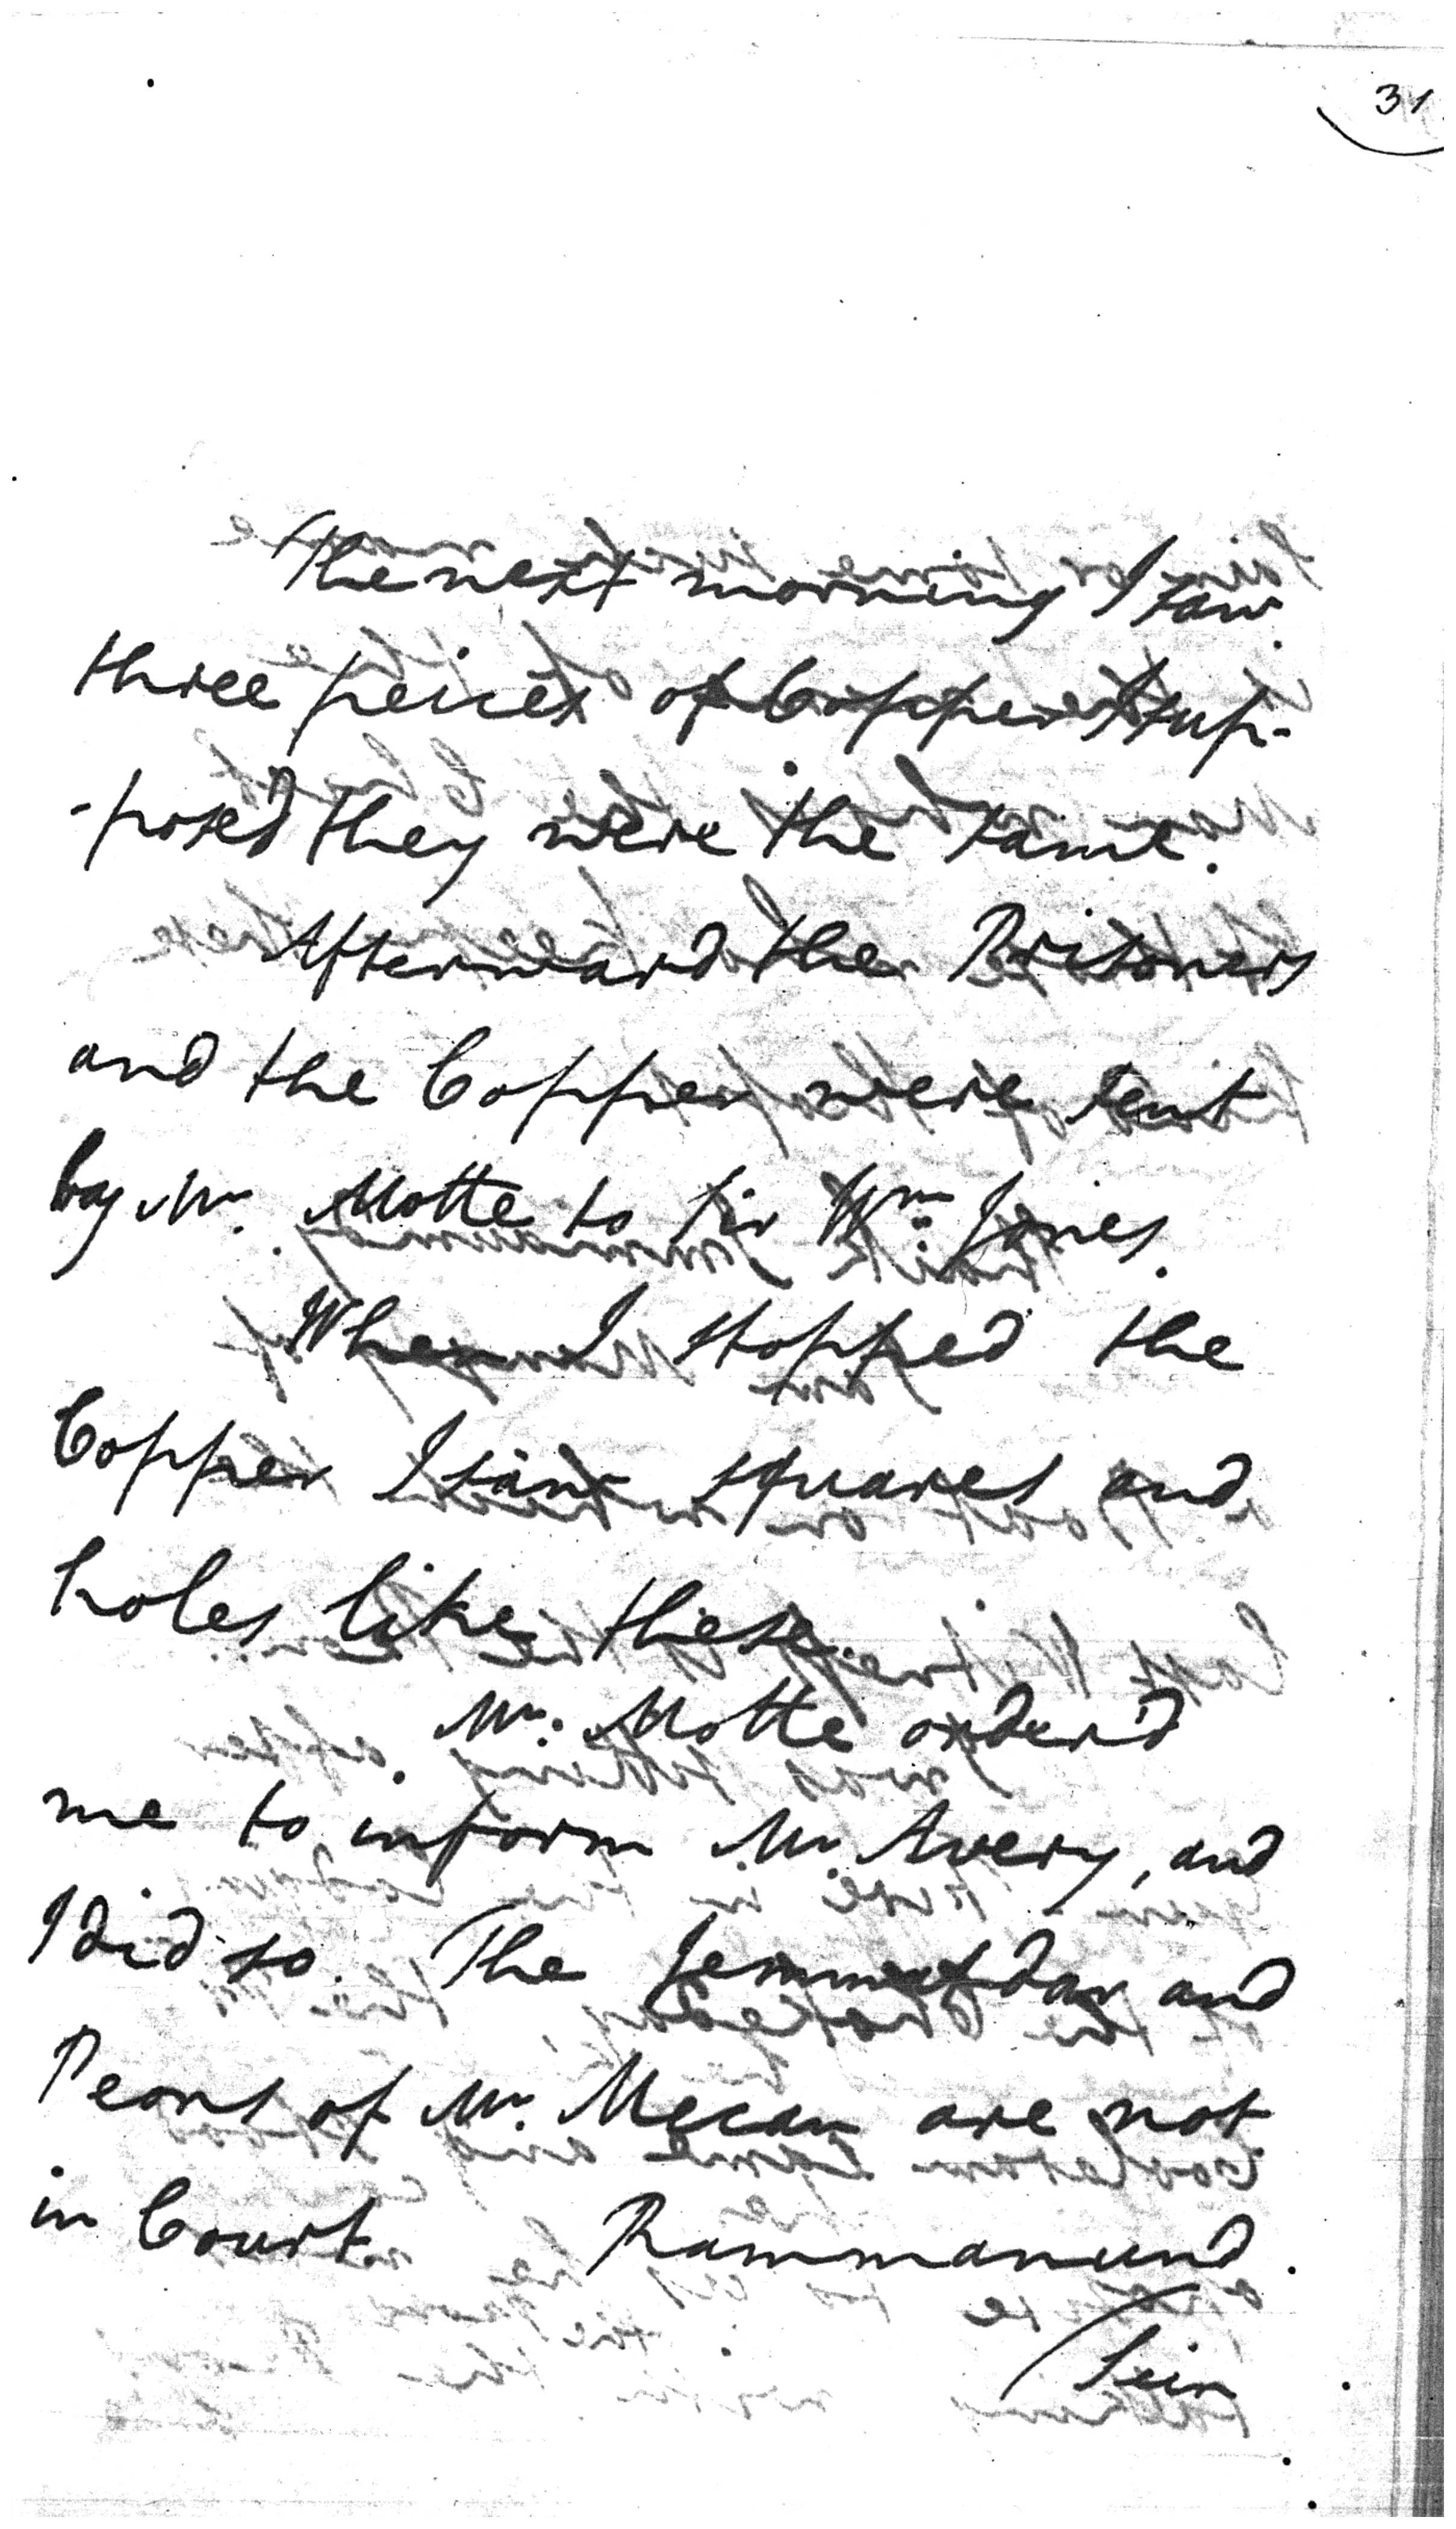 31.
The next morning I saw
three peices of Copper I sup-
-posed they were the same.
Afterward the Prisoners
and the Copper were sent
by Mr. Motte to Sir Wm. Jones.
When I stopped the
Copper I saw squares and
holes like these.
Mr. Motte order'd
me to inform Mr. Avery, and
I did so. The Jemmatdar and
Peons of Mr. Mecan are not
in Court. Rammanund.
Sein